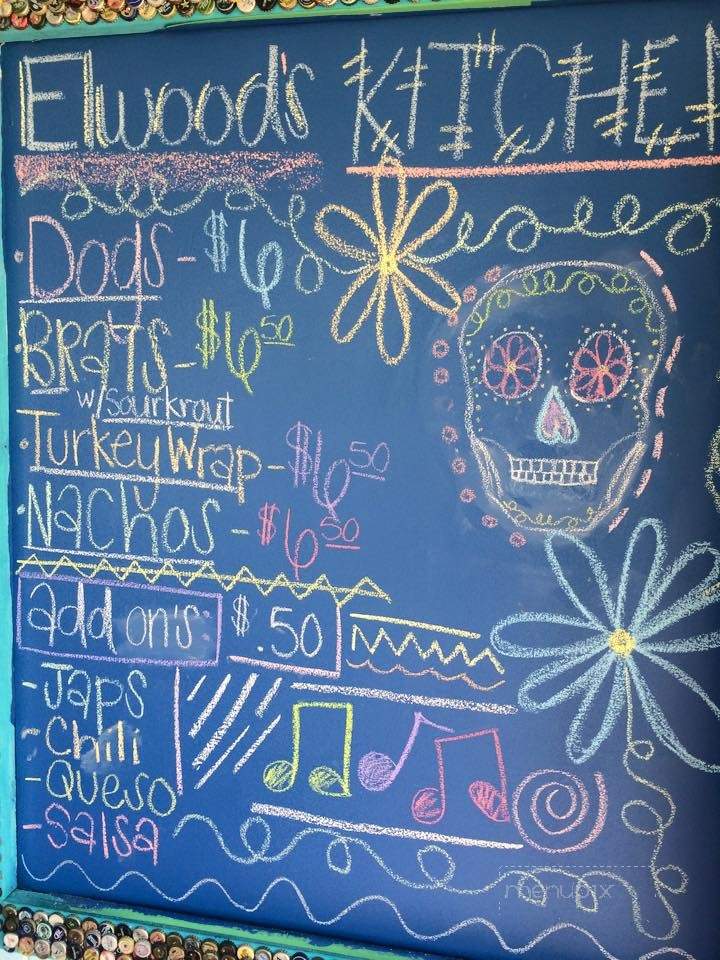 Elwood's KITCHEN
Dogs - $6
BRATS - $6.50
w/sourkrout
Turkey Wrap - $6.50
Nachos - $6.50
add on's $.50
- Japs
- Chili
- Queso
- Salsa
menupix